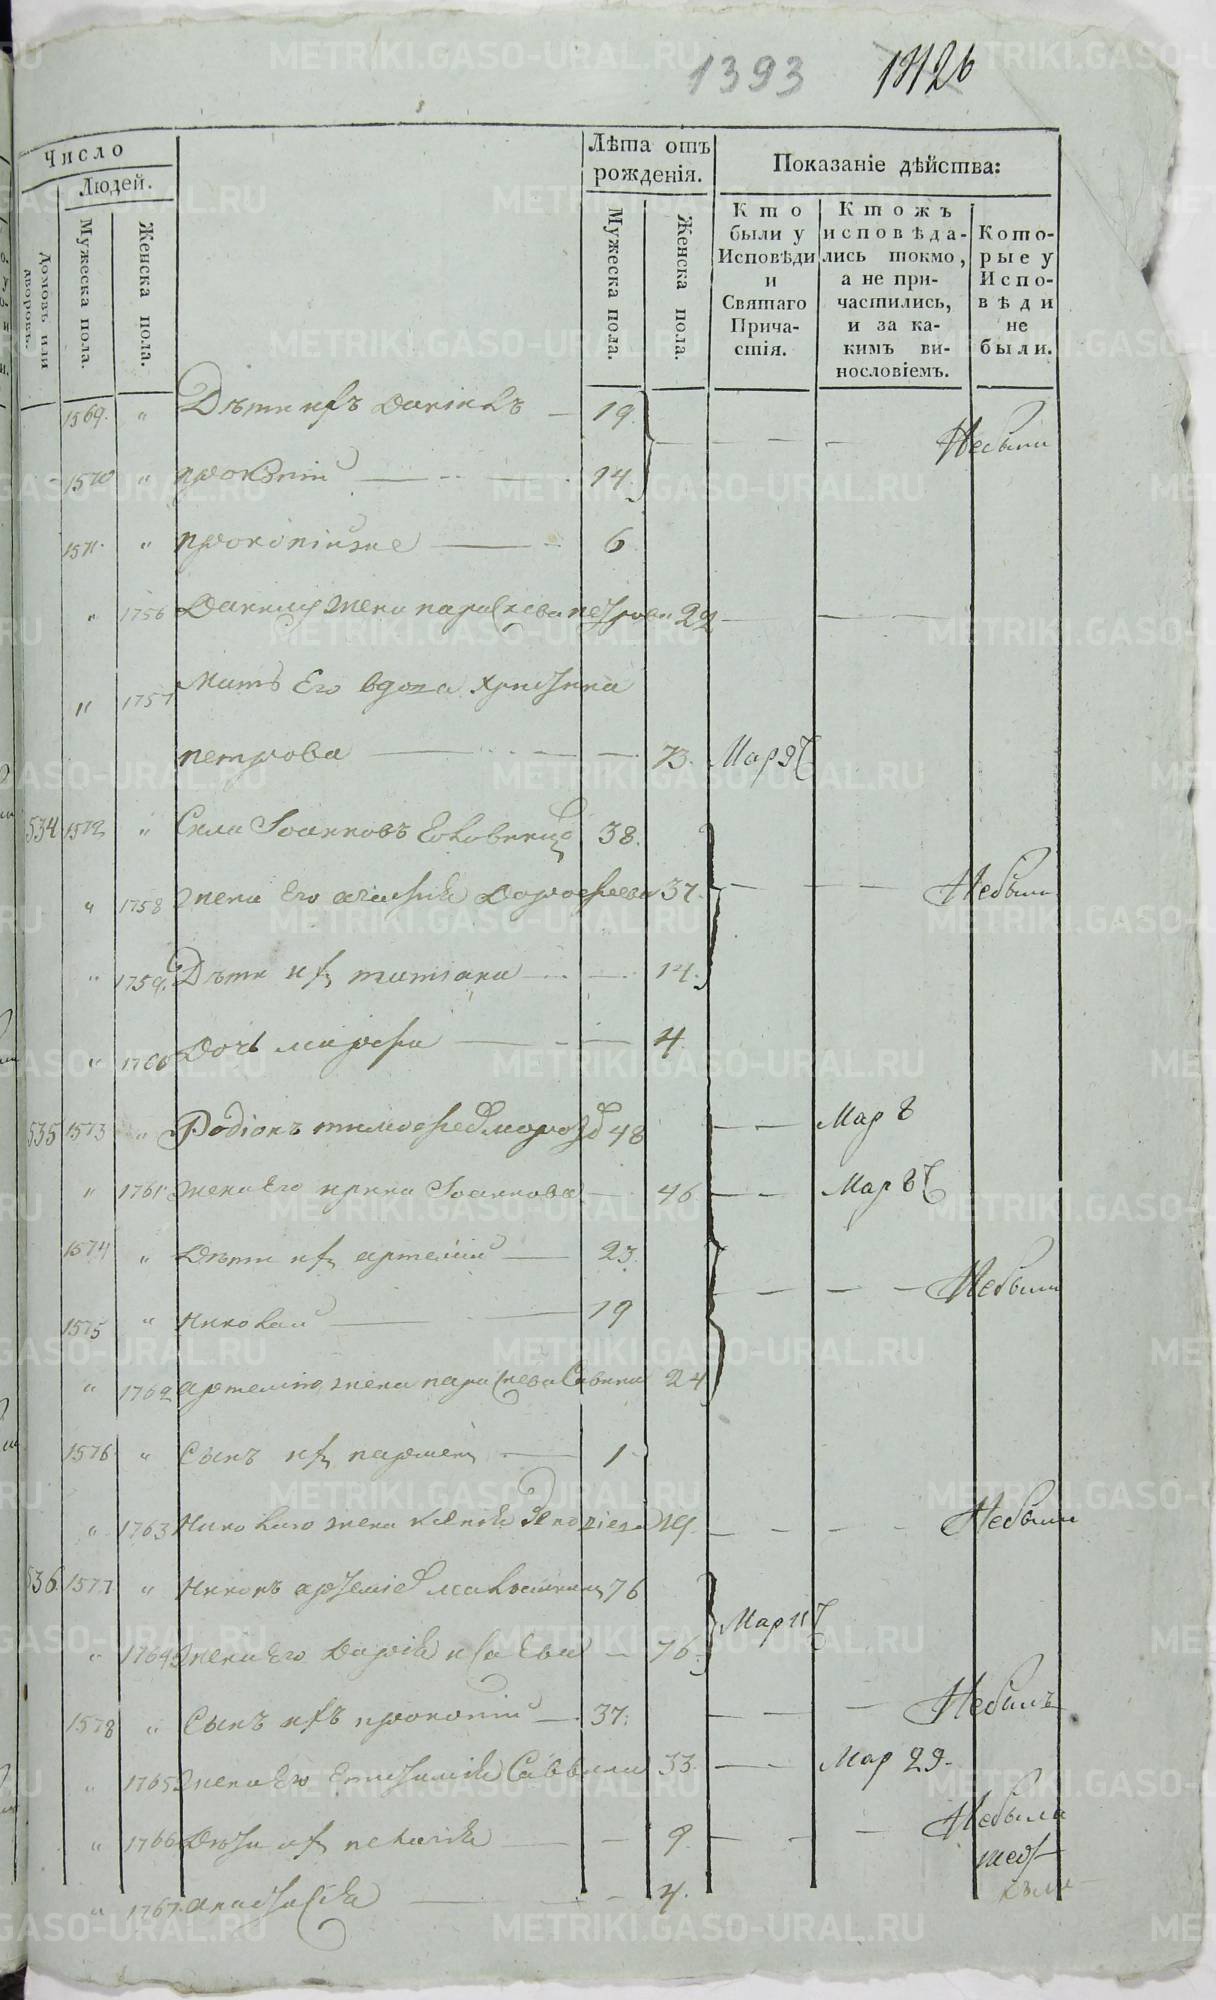 1393 1426
Число
Людей.
Домовъ или дворовъ.
Мужеска пола.
Женска пола.
Лѣта отъ рожденія.
Мужеска пола.
Женска пола.
Показаніе дѣйства:
Кто были у Исповѣди и Святаго Причастія.
Ктожъ исповѣдались токмо, а не причастились, и за какимъ винословіемъ.
Которые у Исповѣди не были.
1569. " Дѣти ихъ Данiилъ — 19. Небыли
1570 " — 14.
1571. " Прокопій же — 6
" 1756 Даниилу жена Параскева Петрова 22
" 1757 Мать Его вдова Христина
Петрова — 73. Мар 9
534 1572 " Сила Іоанновъ 38.
" 1758 жена Его Агафія Дорофеева 37. Небыли
" 1759. Дѣти их Татiана — 14.
" 1760 Дочь Марфа — 4
535 1573 " Родіонъ Тимофеев 48 Мар 8
" 1761 жена Его Ирина Іоаннова — 46 Мар 8
1574 " Дѣти их Артемій — 23. Небыли
1575 " Николай — 19
" 1762 Артемію жена Параскева Саввина 24
1576 " Сынъ их — 1
" 1763 Николаю жена Ксенія Небыли
536 1577 " Никонъ Артемiев 76 Мар 11
" 1764 жена Его Дарія Исаева — 76.
1578 " Сынъ ихъ Прокопій — 37. Небылъ
" 1765 жена Его Евстолія Саввина 33. Мар 29
" 1766 Дѣти их Пелагія — 9. Небыла
" 1767. Анастасія — 4.
METRIKI.GASO-URAL.RU